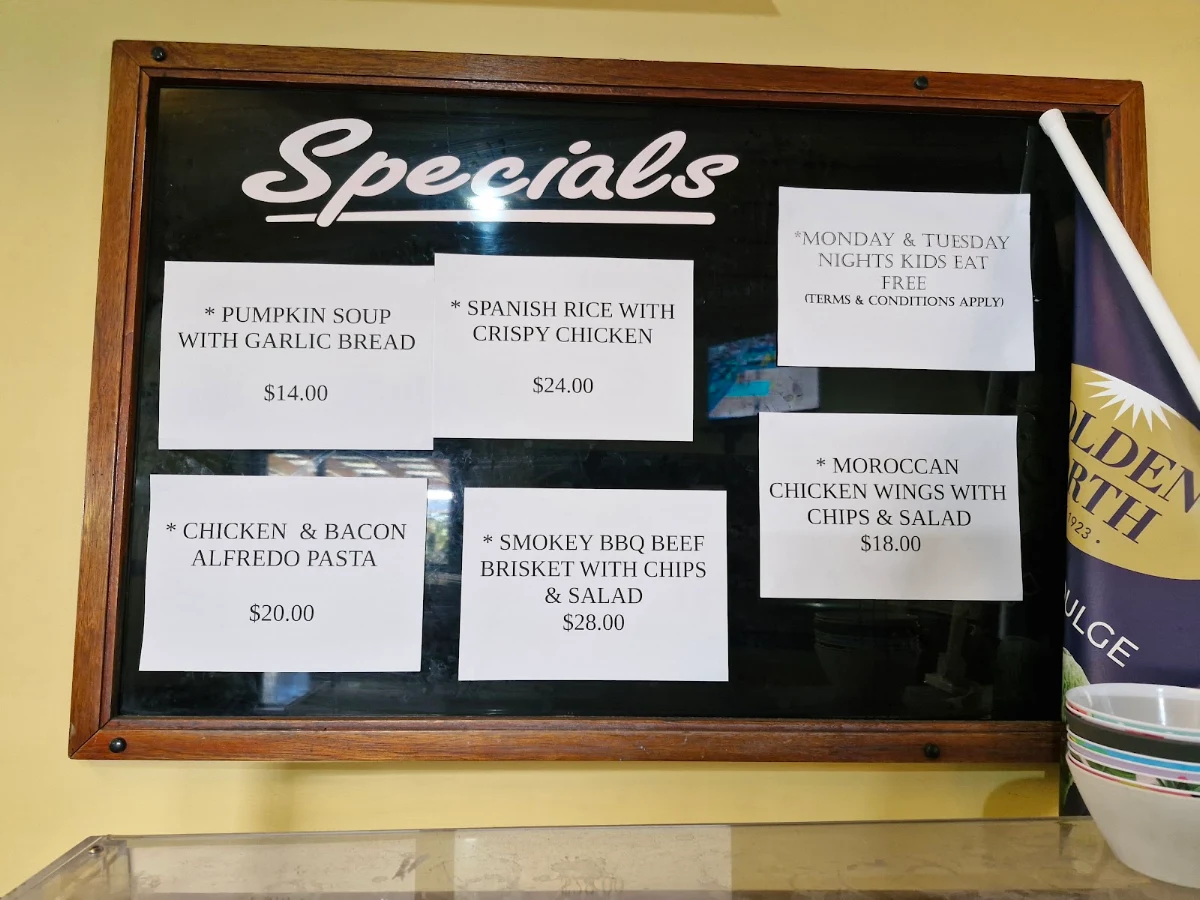 Specials
*MONDAY & TUESDAY
NIGHTS KIDS EAT
FREE
(TERMS & CONDITIONS APPLY)
* PUMPKIN SOUP
WITH GARLIC BREAD
$14.00
* SPANISH RICE WITH
CRISPY CHICKEN
$24.00
* CHICKEN & BACON
ALFREDO PASTA
$20.00
* SMOKEY BBQ BEEF
BRISKET WITH CHIPS
& SALAD
$28.00
* MOROCCAN
CHICKEN WINGS WITH
CHIPS & SALAD
$18.00
OLDEN
RTH
1923 •
ULGE